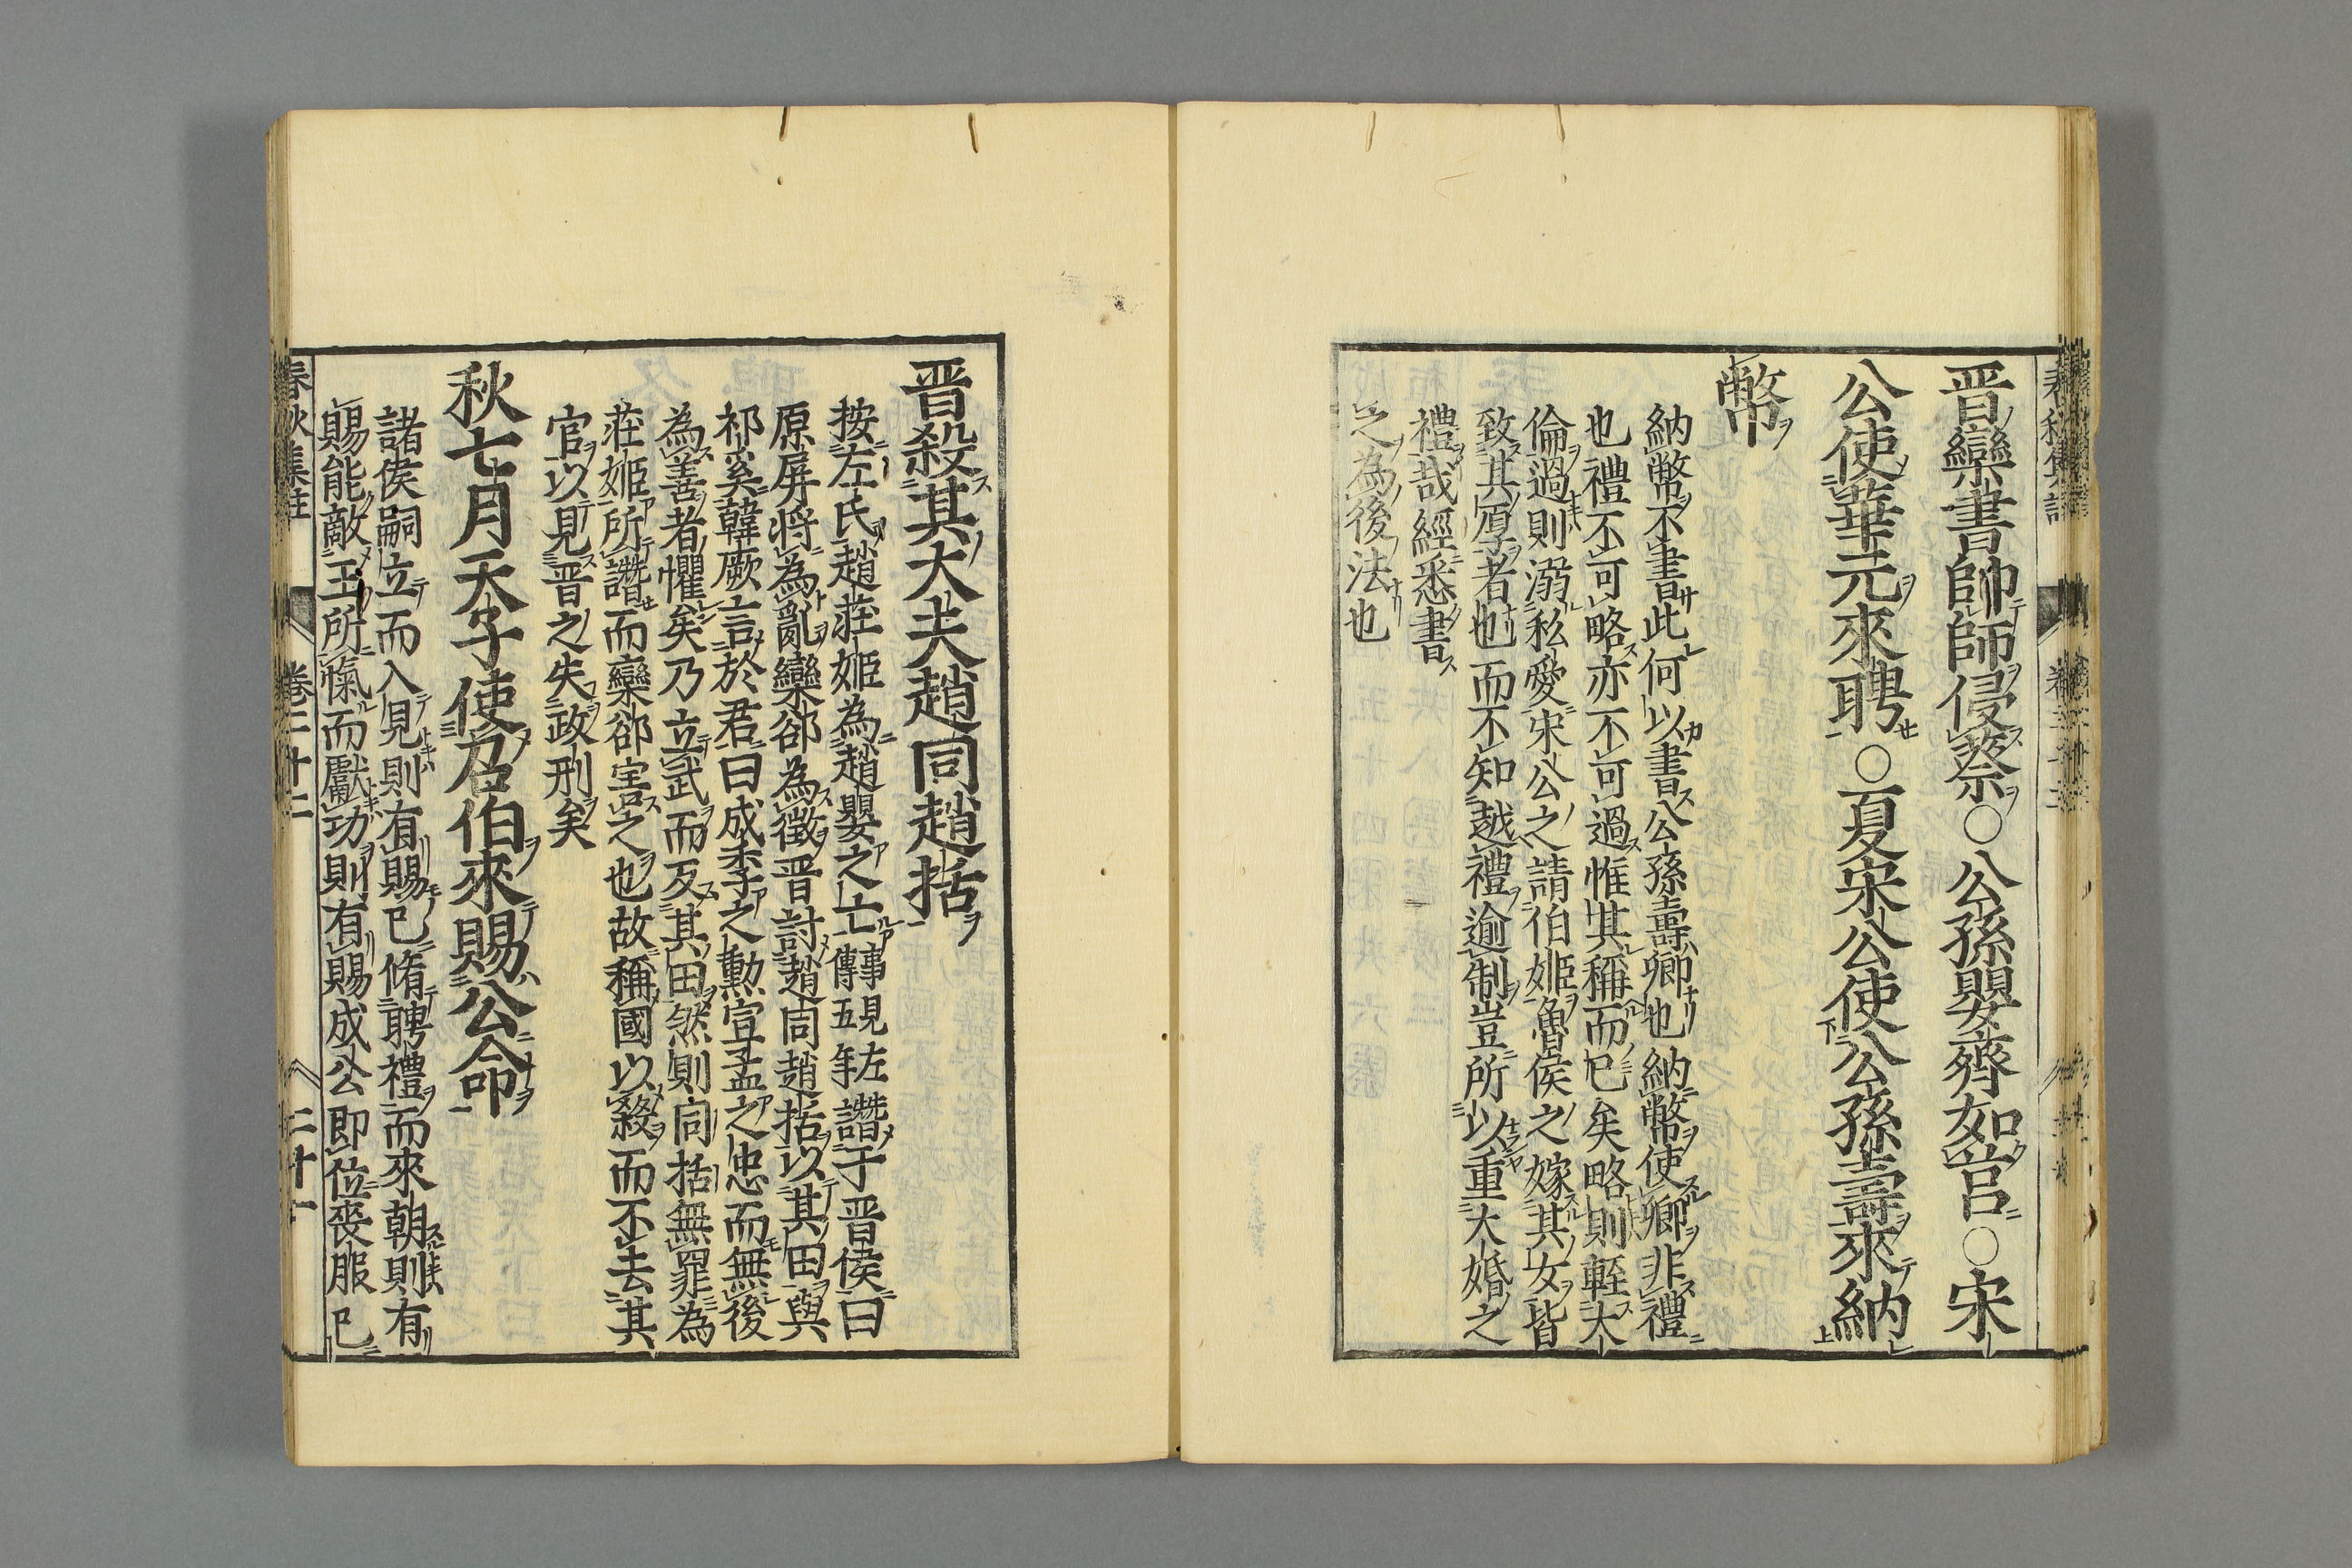 晋欒書帥師侵蔡○公孫嬰齊如莒○宋
公使華元來聘○夏宋公使公孫壽來納
幣
納幣不書此何以書公孫壽卿也納幣使卿非禮
也禮不可略亦不可過惟其稱而已矣略則輕大
倫過則溺私愛宋公之請伯姬魯侯之嫁其女皆
致其厚者也而不知越禮逾制豈所以重大婚之
禮哉經悉書
之為後法也
晋殺其大夫趙同趙括
按左氏趙莊姬為趙嬰之亡事見左傳五年譖于晋侯曰
原屏將為亂欒郤為徵晋討趙同趙括以其田與
祁奚韓厥言於君曰成季之勳宣孟之忠而無後
為善者懼矣乃立武而反其田然則同括無罪為
莊姬所譖而欒郤害之也故稱國以殺而不去其
官以見晋之失政刑矣
秋七月天子使召伯來賜公命
諸侯嗣立而入見則有賜已脩聘禮而來朝則有
賜能敵王所愾而獻功則有賜成公即位喪服已
春秋集註 卷二十二 二十一